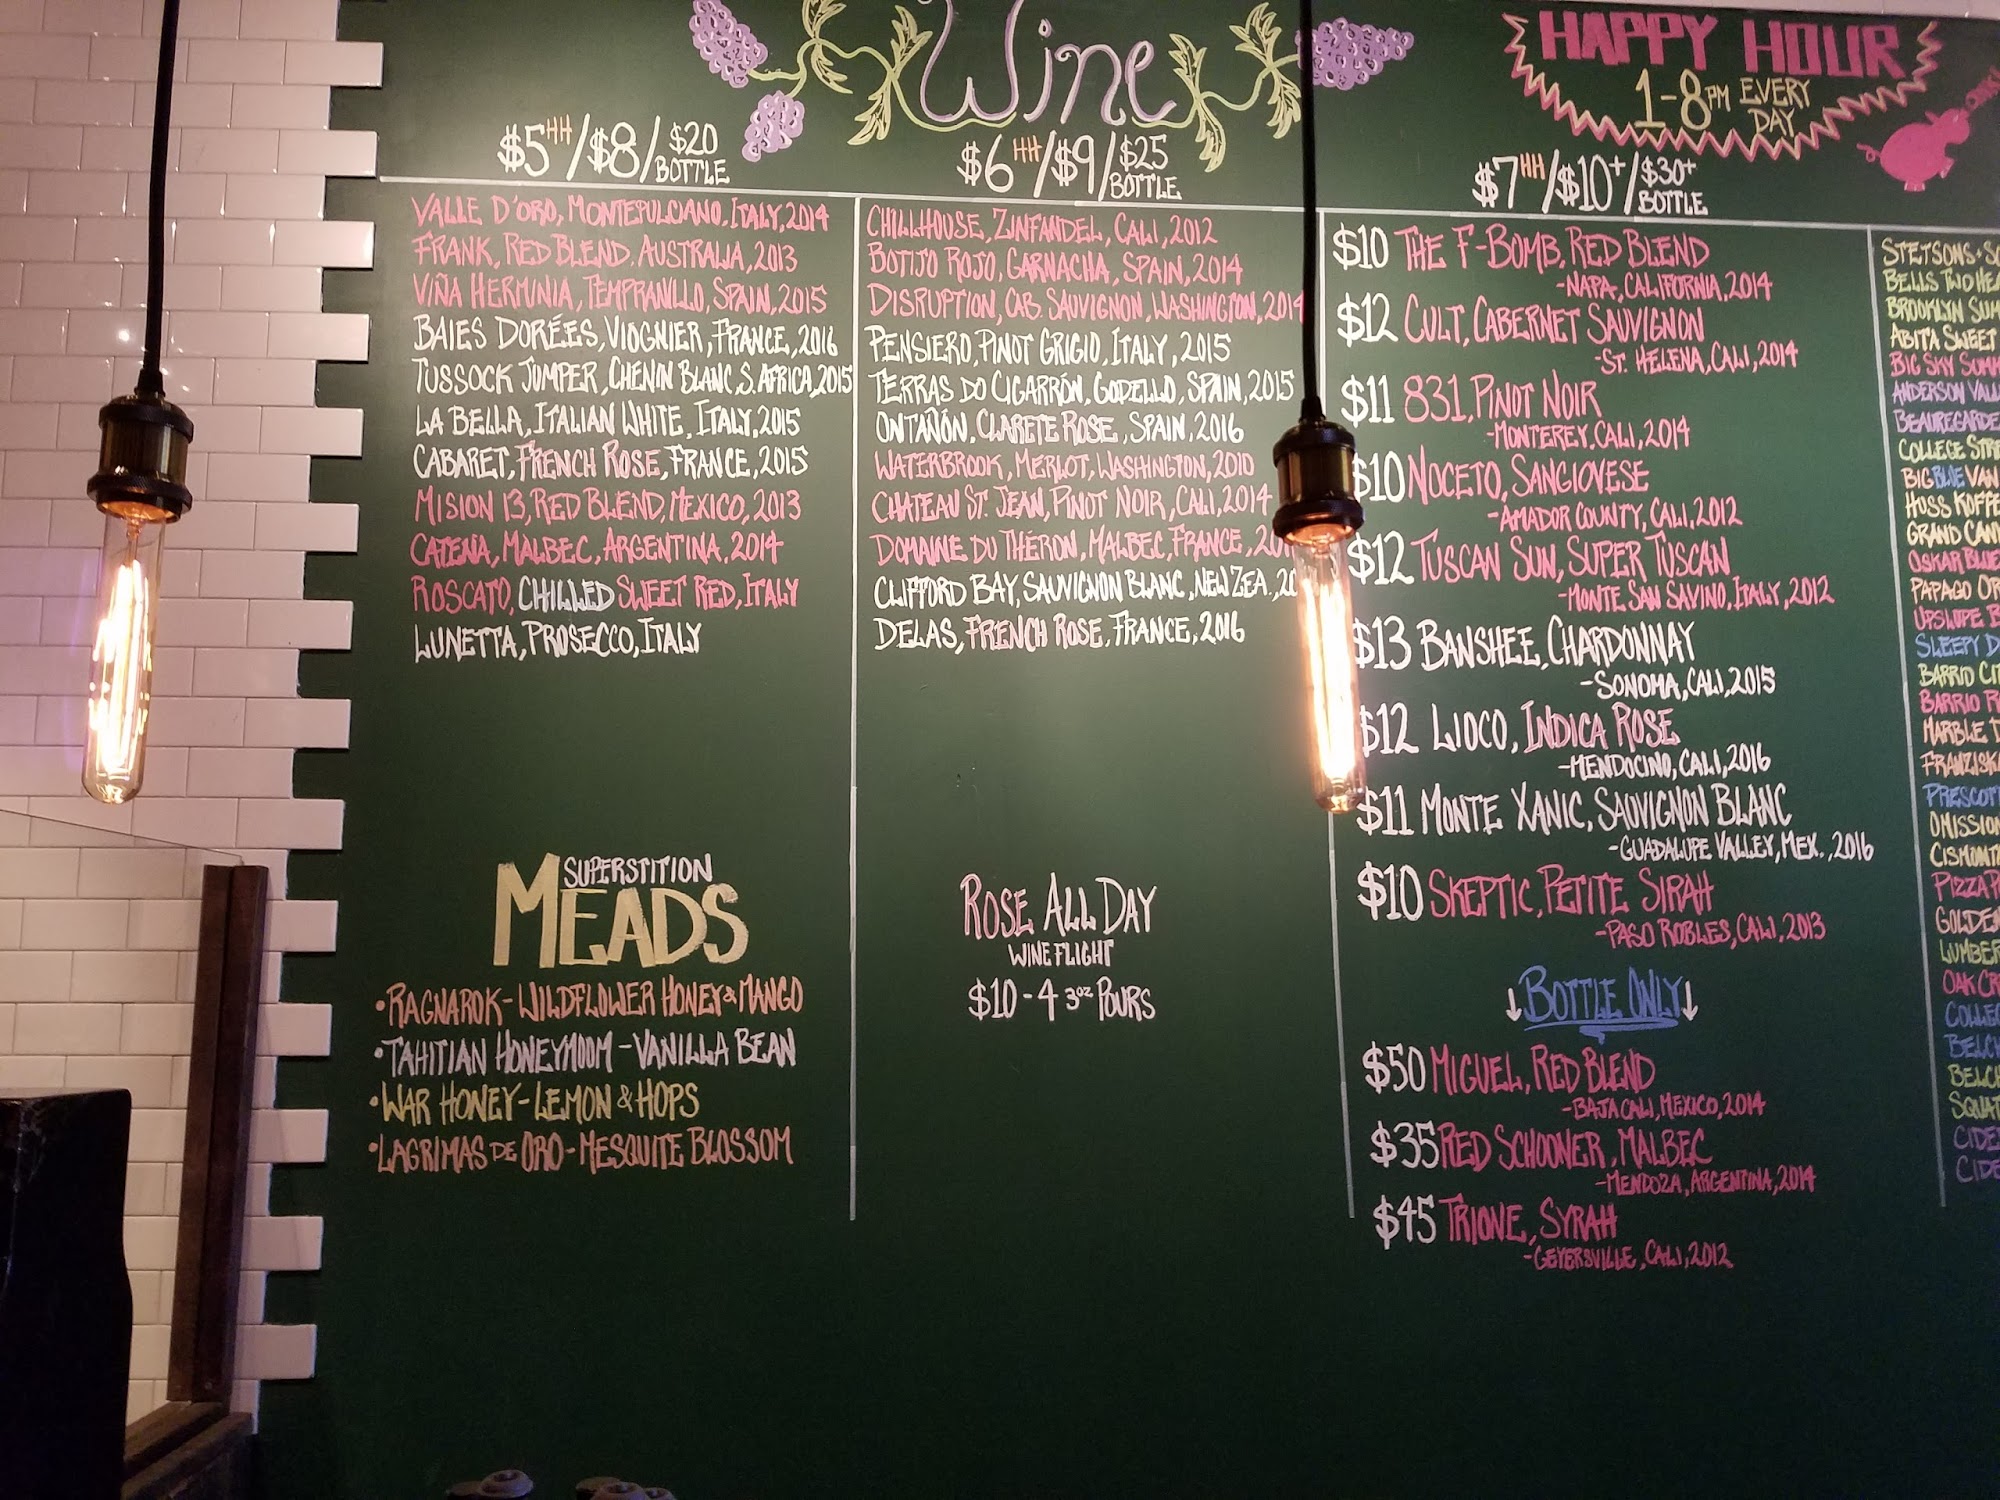 Wine
HAPPY HOUR
1-8PM EVERY DAY
$5 HH/$8/$20 BOTTLE
VALLE D'ORO, MONTEPULCIANO, ITALY, 2014
FRANK, RED BLEND, AUSTRALIA, 2013
VIÑA HERMINIA, TEMPRANILLO, SPAIN, 2015
BAIES DORÉES, VIOGNIER, FRANCE, 2016
TUSSOCK JUMPER, CHENIN BLANC, S. AFRICA, 2015
LA BELLA, ITALIAN WHITE, ITALY, 2015
CABARET, FRENCH ROSE, FRANCE, 2015
MISION 13, RED BLEND, MEXICO, 2013
CATENA, MALBEC, ARGENTINA, 2014
ROSCATO, CHILLED SWEET RED, ITALY
LUNETTA, PROSECCO, ITALY
SUPERSTITION
MEADS
• RAGNAROK - WILDFLOWER HONEY & MANGO
• TAHITIAN HONEYMOOM - VANILLA BEAN
• WAR HONEY - LEMON & HOPS
• LAGRIMAS DE ORO - MESQUITE BLOSSOM
$6 HH/$9/$25 BOTTLE
CHILLHOUSE, ZINFANDEL, CALI, 2012
BOTIJO ROJO, GARNACHA, SPAIN, 2014
DISRUPTION, CAB. SAUVIGNON, WASHINGTON, 2014
PENSIERO, PINOT GRIGIO, ITALY, 2015
TERRAS DO CIGARRÓN, GODELLO, SPAIN, 2015
ONTAÑÓN, CLARETE ROSE, SPAIN, 2016
WATERBROOK, MERLOT, WASHINGTON, 2010
CHATEAU ST. JEAN, PINOT NOIR, CALI, 2014
DOMAINE DU THÉRON, MALBEC, FRANCE, 201
CLIFFORD BAY, SAUVIGNON BLANC, NEW ZEA., 20
DELAS, FRENCH ROSE, FRANCE, 2016
ROSE ALL DAY
WINE FLIGHT
$10 - 4 3oz POURS
$7 HH/$10+/$30+ BOTTLE
$10 THE F-BOMB, RED BLEND
-NAPA, CALIFORNIA, 2014
$12 CULT, CABERNET SAUVIGNON
-ST. HELENA, CALI, 2014
$11 831, PINOT NOIR
-MONTEREY, CALI, 2014
$10 NOCETO, SANGIOVESE
-AMADOR COUNTY, CALI, 2012
$12 TUSCAN SUN, SUPER TUSCAN
-MONTE SAN SAVINO, ITALY, 2012
$13 BANSHEE, CHARDONNAY
-SONOMA, CALI, 2015
$12 LIOCO, INDICA ROSE
-MENDOCINO, CALI, 2016
$11 MONTE XANIC, SAUVIGNON BLANC
-GUADALUPE VALLEY, MEX., 2016
$10 SKEPTIC, PETITE SIRAH
-PASO ROBLES, CALI, 2013
↓BOTTLE ONLY↓
$50 MIGUEL, RED BLEND
-BAJA CALI, MEXICO, 2014
$35 RED SCHOONER, MALBEC
-MENDOZA, ARGENTINA, 2014
$45 TRIONE, SYRAH
-GEYERSVILLE, CALI, 2012
STETSONS + SO
BELLS TWO HE
BROOKLYN SUM
ABITA SWEET
BIG SKY SUMM
ANDERSON VALL
BEAUREGARDE
COLLEGE STRE
BIG BLUE VAN
HUSS KOFFE
GRAND CAN
OSKAR BLUE
PAPAGO OR
UPSLOPE B
SLEEPY D
BARRIO CIT
BARRIO R
MARBLE
FRANZISK
PRESCOTT
OMISSION
CISMONT
PIZZA P
GOLDEN
LUMBER
OAK CR
COLLEG
BELCH
BELCH
SQUAT
CIDE
CIDE